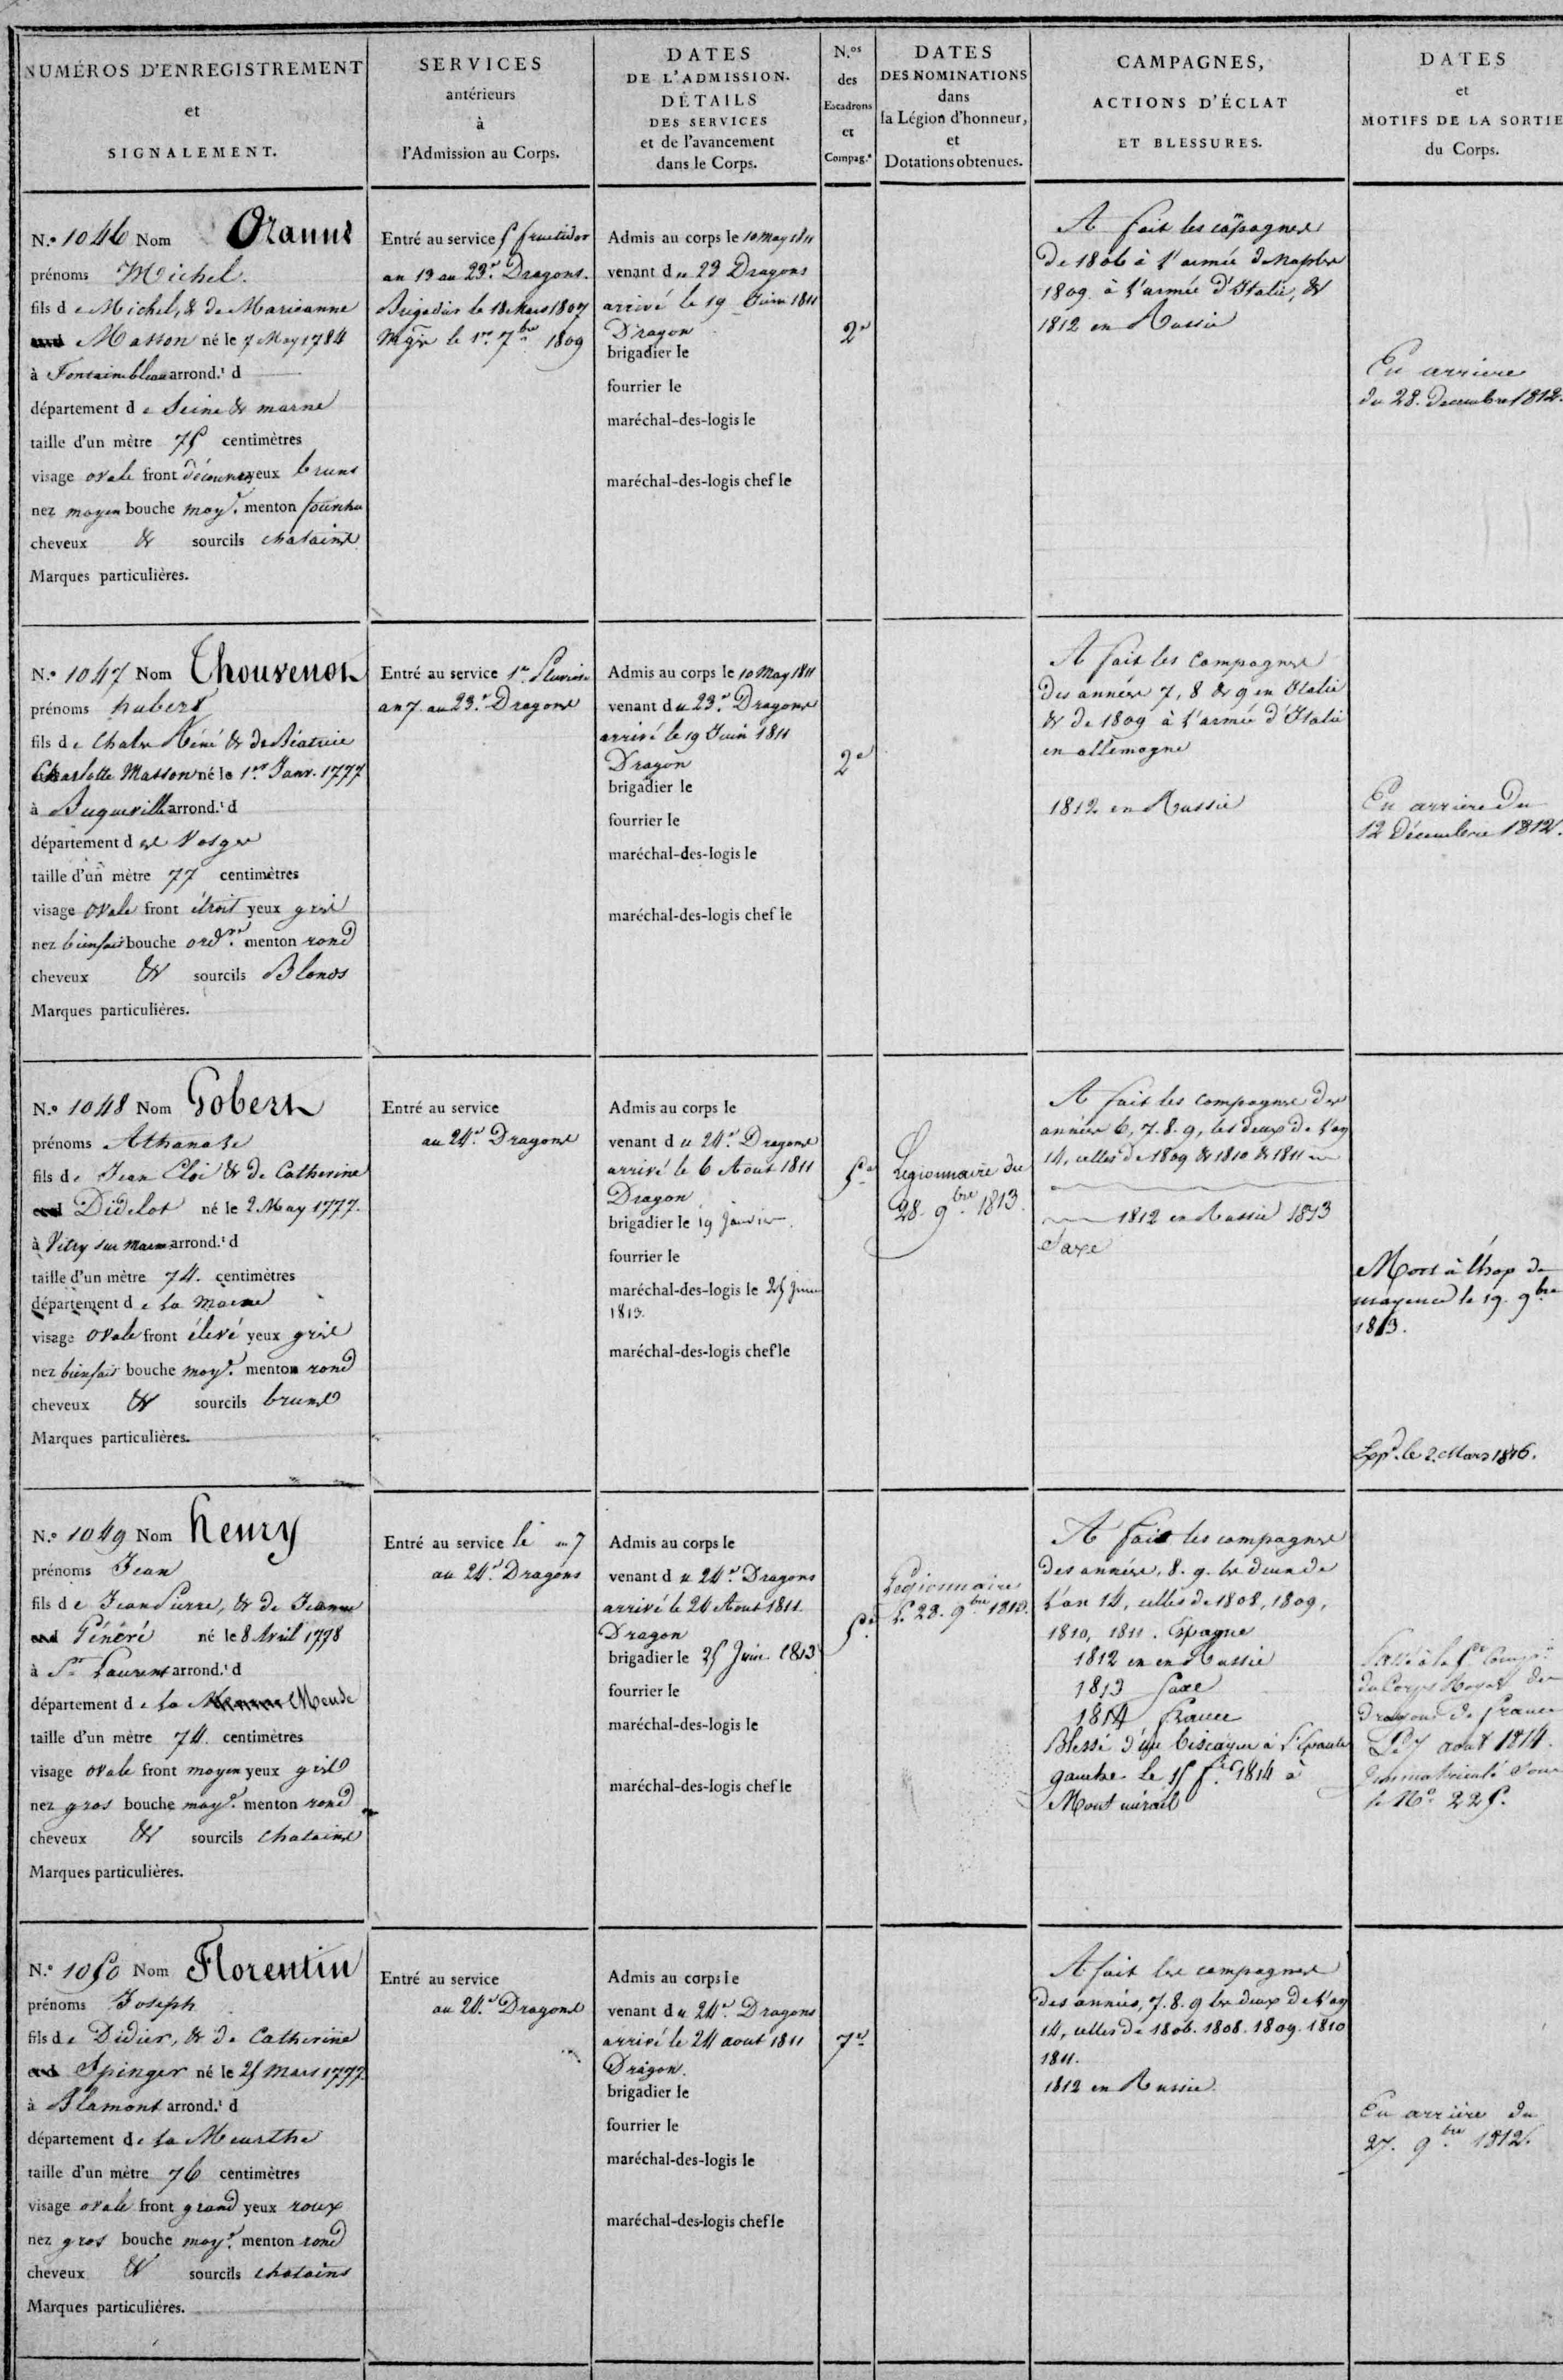 NUMÉROS D'ENREGISTREMENT
et
SIGNALEMENT.
SERVICES
antérieurs
à
l'Admission au Corps.
DATES
DE L'ADMISSION.
DÉTAILS
DES SERVICES
et de l'avancement
dans le Corps.
N.os
des
Escadrons
et
Compag.s
DATES
DES NOMINATIONS
dans
la Légion d'honneur,
et
Dotations obtenues.
CAMPAGNES,
ACTIONS D'ÉCLAT
ET BLESSURES.
DATES
et
MOTIFS DE LA SORTIE
du Corps.
N.o 1046 Nom Ozanne
prénoms Michel.
fils de Michel, & de Marieanne
Masson né le 7 May 1784
à Fontainebleau arrond.t d
département de Seine & marne
taille d'un mètre 75 centimètres
visage ovale front découvert yeux bruns
nez moyen bouche moy.e menton fourchu
cheveux & sourcils chatains
Marques particulières.
Entré au service 5 fructidor
an 13 au 23.e Dragons.
Brigadier le 18 Mars 1807
le 1er 7bre 1809
Admis au corps le 10 May 1811
venant du 23 Dragons
arrivé le 19 Juin 1811
Dragon
brigadier le
fourrier le
maréchal-des-logis le
maréchal-des-logis chef le
2e
A fait les campagnes
de 1806 à l'armée de Naples
1809 à l'armée d'Italie, &
1812 en Russie
En arriere
du 28. Decembre 1812.
N.o 1047 Nom Thouvenot
prénoms hubert
fils de Chales Réné & de Béatrice
Charlotte Masson né le 1er Janv. 1777
à Buqueville arrond.t d
département des Vosges
taille d'un mètre 77 centimètres
visage ovale front étroit yeux gris
nez bienfait bouche ord.re menton rond
cheveux & sourcils Blonds
Marques particulières.
Entré au service 1er Pluviose
an 7. au 23.e Dragons
Admis au corps le 10 May 1811
venant du 23.e Dragons
arrivé le 19 Juin 1811
Dragon
brigadier le
fourrier le
maréchal-des-logis le
maréchal-des-logis chef le
2e
A fait les Campagnes
des années 7, 8 & 9 en Italie
& de 1809 à l'armée d'Italie
en allemagne
1812 en Russie
En arriere Du
12 Décembre 1812.
N.o 1048 Nom Gobert
prénoms Athanase
fils de Jean Eloi & de Catherine
Didelot né le 2 May 1777.
à Vitry sur marne arrond.t d
taille d'un mètre 74. centimètres
département de la Marne
visage ovale front élevé yeux gris
nez bienfait bouche moy.e menton rond
cheveux & sourcils bruns
Marques particulières.
Entré au service
au 24.e Dragons
Admis au corps le
venant du 24.e Dragons
arrivé le 6 Aout 1811
Dragon
brigadier le 19 Janvier
fourrier le
maréchal-des-logis le 25 Juin
1813.
maréchal-des-logis chef le
5e
Legionnaire du
28. 9bre 1813.
A fait les Campagnes des
années 6, 7. 8. 9, les deux de l'an
14, celles de 1809 & 1810 & 1811
1812 en Russie 1813
Saxe
Mort à l'hop de
mayence le 19. 9bre
1813.
Exp.d le 2. Mars 1816.
N.o 1049 Nom henry
prénoms Jean
fils de Jean Pierre, & de Jeanne
Généré né le 8 Avril 1778
à St Laurent arrond.t d
département de la Meuse
taille d'un mètre 74. centimètres
visage ovale front moyen yeux gris
nez gros bouche moy.e menton rond
cheveux & sourcils chatains
Marques particulières.
Entré au service le an 7
au 24.e Dragons
Admis au corps le
venant du 24.e Dragons
arrivé le 24 Aout 1811.
Dragon
brigadier le 25 Juin 1813
fourrier le
maréchal-des-logis le
maréchal-des-logis chef le
5e
Légionnaire
le 28. 9bre 1813.
A fait les campagnes
des années, 8. 9. les deux de
l'an 14, celles de 1808, 1809,
1810, 1811. Espagne
1812 en en Russie
1813 Saxe
1814 france
Blessé d'un biscayen à l'Epaule
gauche le 15 f.er 1814 à
Mont mirail
Passé à la 5e Comp.ie
du Corps Royal des
dragons de france
Le 7 aout 1814.
Immatriculé sous
le No 225.
N.o 1050 Nom Florentin
prénoms Joseph
fils de Didier, & de Catherine
Spinger né le 25 Mars 1777
à Blamont arrond.t d
département de la Meurthe
taille d'un mètre 76 centimètres
visage ovale front grand yeux roux
nez gros bouche moy.e menton rond
cheveux & sourcils chatains
Marques particulières.
Entré au service
au 24.e Dragons
Admis au corps le
venant du 24.e Dragons
arrivé le 24 aout 1811
Dragon.
brigadier le
fourrier le
maréchal-des-logis le
maréchal-des-logis chef le
7e
A fait les campagnes
des années, 7. 8. 9 les deux de l'an
14, celles de 1806. 1808. 1809. 1810
1811.
1812 en Russie.
En arrière du
27. 9bre 1812.